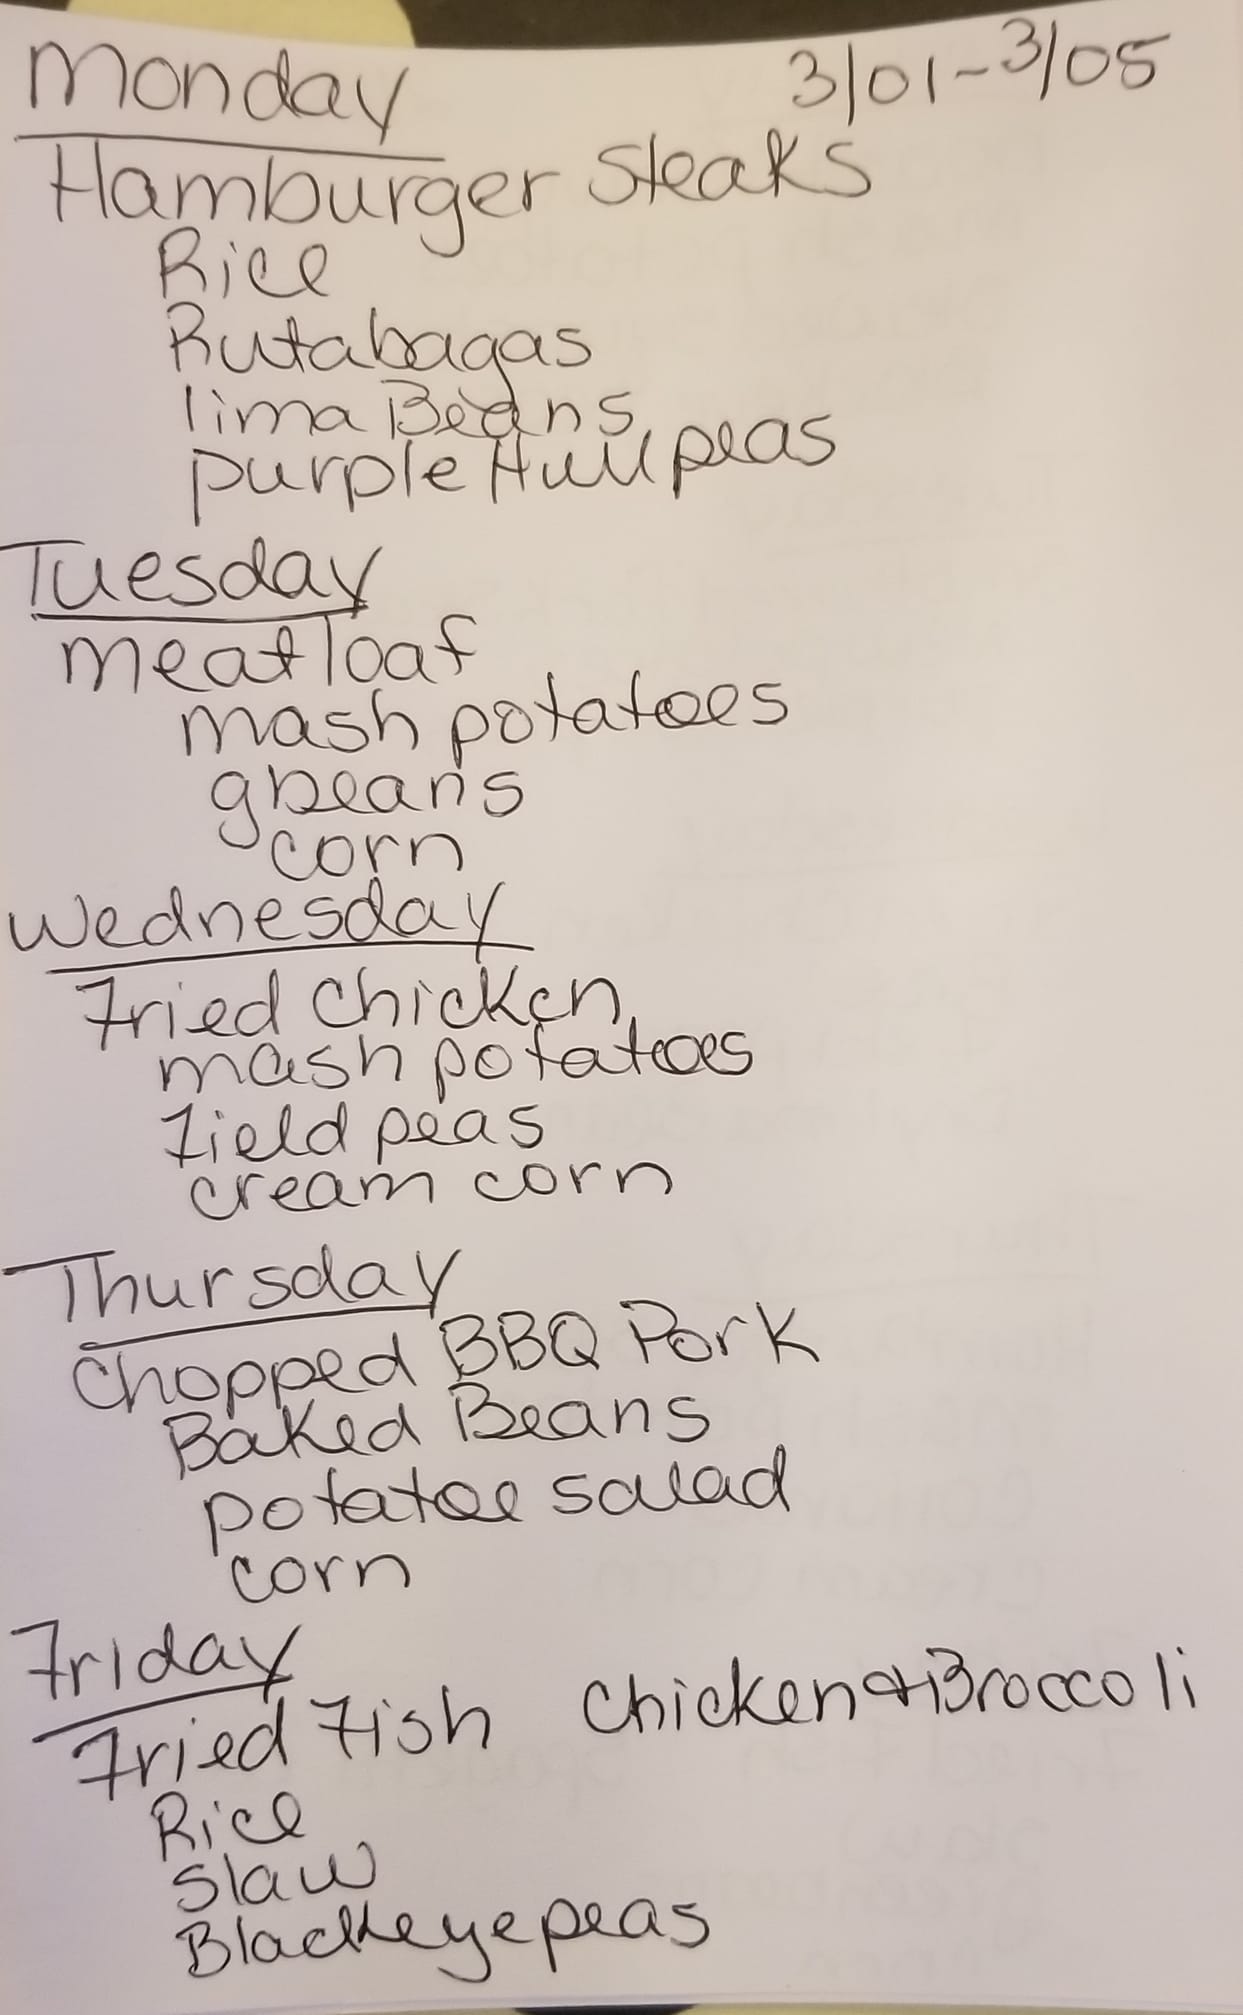 Monday 3/01-3/05
Hamburger Steaks
Rice
Rutabagas
lima Beans
purple Hull peas
Tuesday
meatloaf
mash potatoes
gbeans
corn
Wednesday
Fried Chicken
mash potatoes
Field peas
cream corn
Thursday
Chopped BBQ Pork
Baked Beans
potatoe salad
corn
Friday
Fried Fish Chicken & Broccoli
Rice
slaw
Blackeyepeas